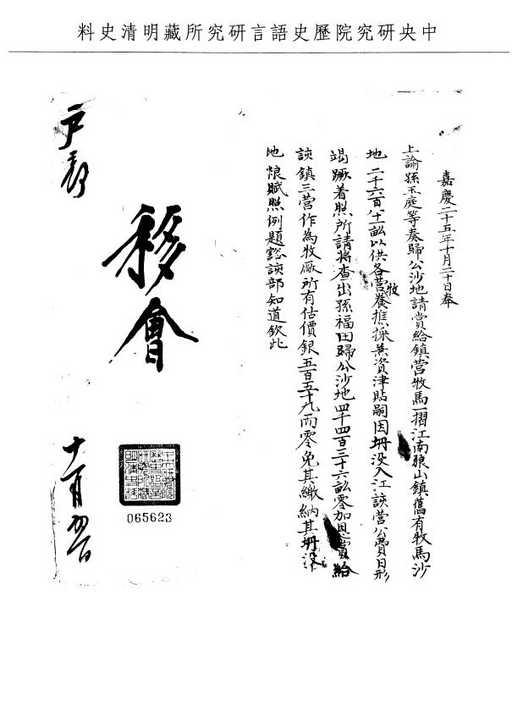 中央研究院歷史語言研究所藏明清史料
嘉慶二十五年十月二十日奉
上諭孫玉庭等奏歸公沙地請賞給鎮營牧馬一摺江南狼山鎮舊有牧馬沙
地二千六百十畝以供各營牧養樵採兼資津貼嗣因坍沒入江該營公費日形
竭蹶着照所請將查出孫福田歸公沙地四千四百三十六畝零加恩賞給
該鎮三營作為牧廠所有估價銀五百五十九兩零免其繳納其坍沒
地粮賦照例題豁該部知道欽此
移會
戶部
十一月初日
065623